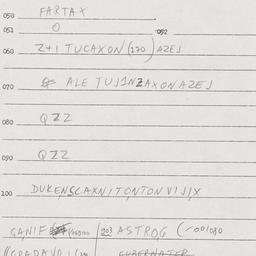 050 FARTAX
051 0 052
060 Z+1 TUCAXON (170) AZEJ
070 ALE TUJINZAXONAZEJ
080 QZZ
090 QZZ
100 DUKENSCAXNITONTONVIJIX
GANIF 203 ASTROG (-001080
GUBERNATER